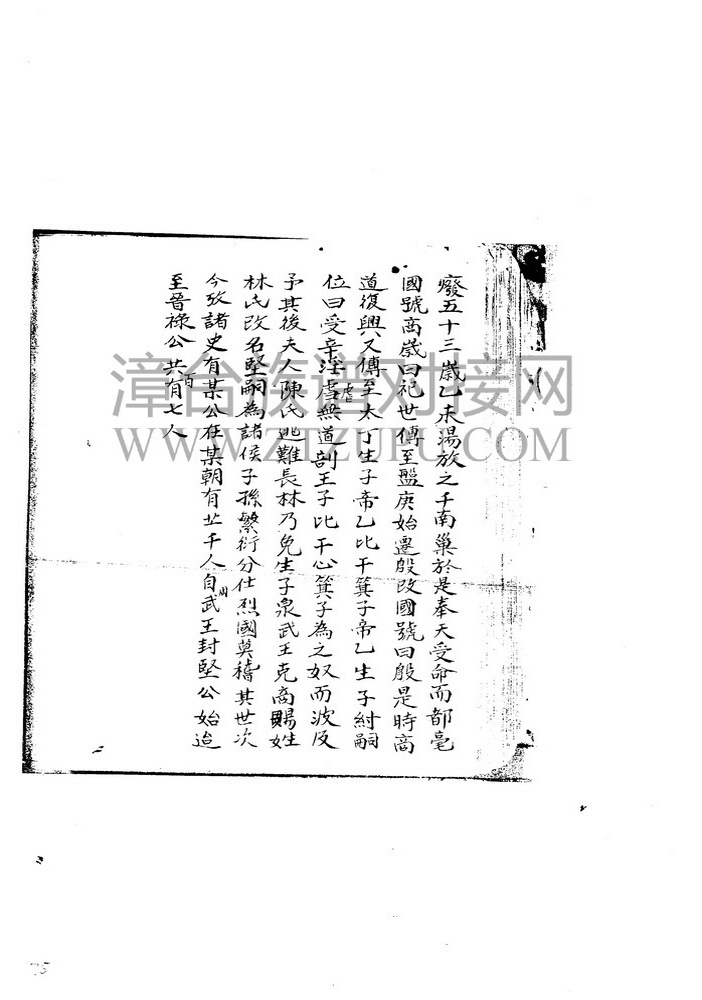 癈五十三歲乙未湯放之于南巢於是奉天受命而都亳
國號商歲曰祀世傳至盤庚始遷殷改國號曰殷是時商
道復興又傳至太丁生子帝乙比干箕子帝乙生子紂嗣
位曰受辛淫虐無道剖王子比干心箕子為之奴而波及
予其後夫人陳氏逃難長林乃免生子泉武王克商賜姓
林氏改名堅嗣為諸侯子孫繁衍分仕烈國莫稽其世次
今攷諸史有某公在某朝有世千人自周武王封堅公始迨
至晉祿公共有百七人
漳台族谱对接网
WWW.ZTZUPU.COM
75